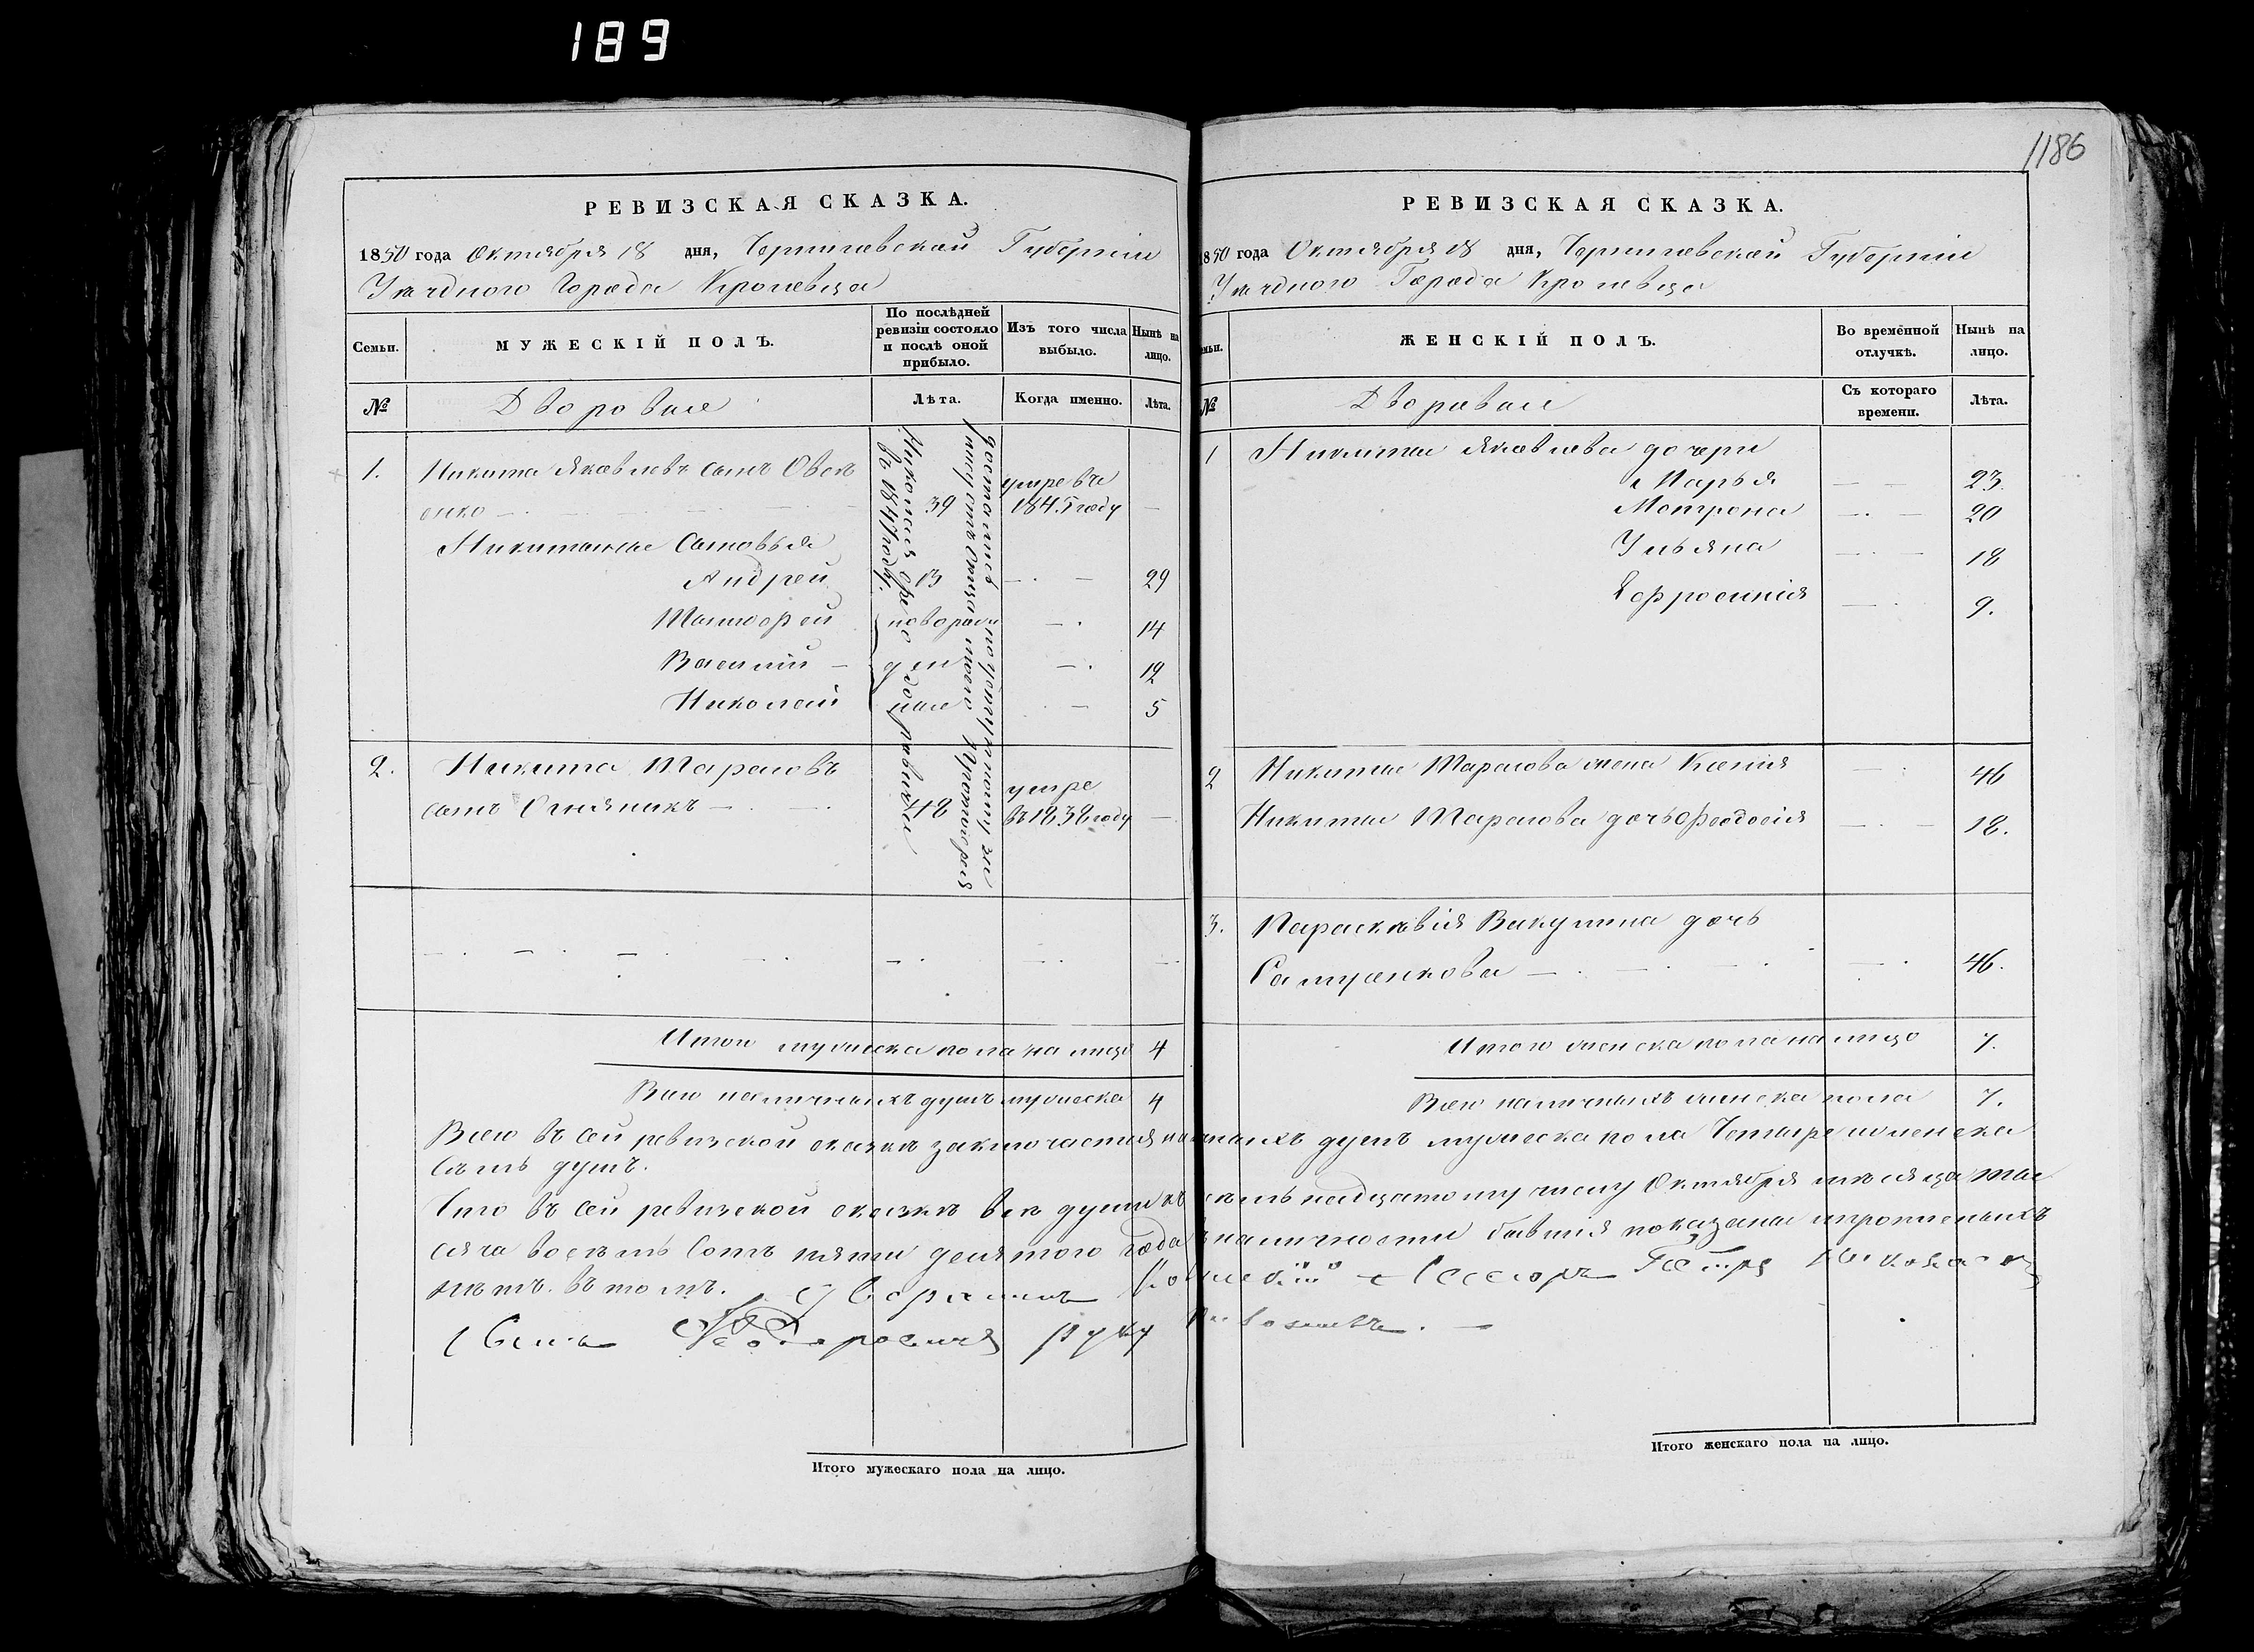 189
1186
РЕВИЗСКАЯ СКАЗКА.
1850 года Октября 18 дня, Черниговской Губерніи
Уѣзднаго Города Кролевца
Семьи.
МУЖЕСКІЙ ПОЛЪ.
По послѣдней ревизіи состояло и послѣ оной прибыло.
Изъ того числа выбыло.
Нынѣ на лицо.
№
Дворовые
Лѣта.
Когда именно.
Лѣта.
Достались по уступному
отъ отца моего Григорія
Николая Федо
въ 1841 году.
1. Никита Яковлевъ сынъ Овсѣ
енко 39 умре въ 1845 году —
Никитины Сыновья
Андрей 13 — 29
Тимофей новорож — 14
Василій — ден — 12
Николай ные — 5
2. Никита Тарасовъ
сынъ Олѣйникъ — 48 умре въ 1838 году —
Итого мужеска пола на лицо 4
Всего наличныхъ душъ мужеска 4
РЕВИЗСКАЯ СКАЗКА.
1850 года Октября 18 дня, Черниговской Губерніи
Уѣзднаго Города Кролевца
Семьи.
ЖЕНСКІЙ ПОЛЪ.
Во временной отлучкѣ.
Нынѣ на лицо.
№
Дворовые
Съ котораго времени.
Лѣта.
1 Никиты Яковлева дочери
Марья — — 23
Мотрона — — 20
Ульяна — — 18
Ефросинія — 9.
2 Никиты Тарасова жена Ксенія — 46
Никиты Тарасова дочь Феодосія — — 18.
3. Параскѣвія Викулина дочь
— 46.
Итого женска пола на лицо 7.
Всего наличныхъ женска пола 7.
Всего въ сей ревизской сказкѣ заключается наличныхъ душъ мужеска пола Четыре и женска
Семь душъ.
Что въ сей ревизской сказкѣ всѣ души къ осьмьнадцатому числу Октября мѣсяца тыс
сяча восемь Сотъ пятидесятого Года въ наличности бывшія показаны и прописныхъ
нѣтъ. въ томъ. Дворянинъ Колежскій Асесоръ Петръ Николаевъ
Сынъ руку приложилъ. —
Итого мужескаго пола на лицо.
Итого женскаго пола на лицо.